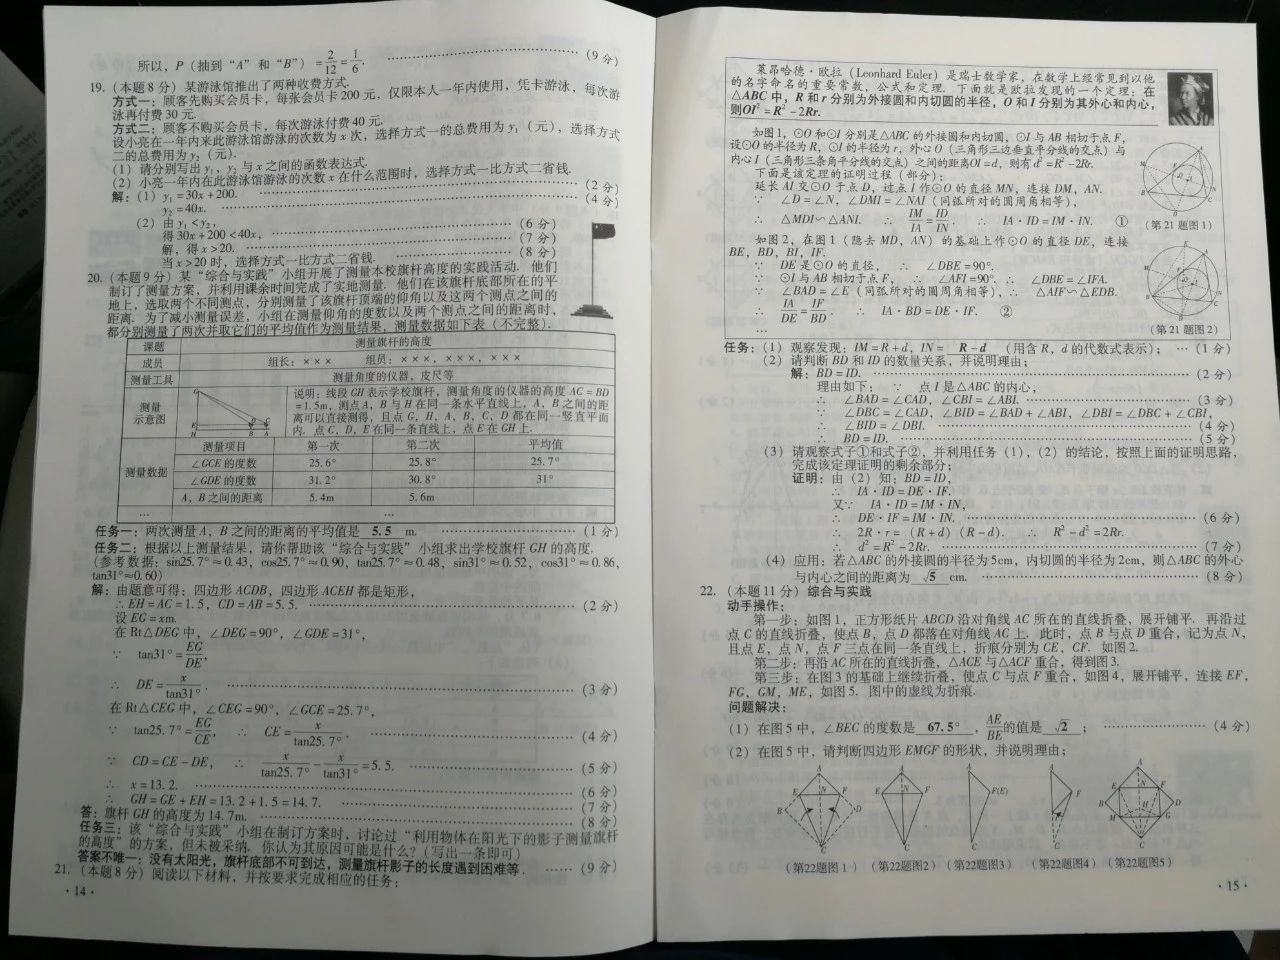 所以，P（抽到“A”和“B”）=2/12=1/6. ……（9 分）
19.（本题8分）某游泳馆推出了两种收费方式.
方式一：顾客先购买会员卡，每张会员卡200元，仅限本人一年内使用，凭卡游泳，每次游
泳再付费30元.
方式二：顾客不购买会员卡，每次游泳付费40元.
设小亮在一年内来此游泳馆游泳的次数为x次，选择方式一的总费用为y₁（元），选择方式
二的总费用为y₂（元）.
（1）请分别写出y₁，y₂与x之间的函数表达式.
（2）小亮一年内在此游泳馆游泳的次数x在什么范围时，选择方式一比方式二省钱.
解：（1）y₁=30x+200. ……（2 分）
y₂=40x. ……（4 分）
（2）由y₁<y₂，
得30x+200<40x， ……（6 分）
解，得x>20. ……（7 分）
当x>20时，选择方式一比方式二省钱. ……（8 分）
20.（本题9分）某“综合与实践”小组开展了测量本校旗杆高度的实践活动. 他们
制订了测量方案，并利用课余时间完成了实地测量. 他们在该旗杆底部所在的平
地上，选取两个不同测点，分别测量了该旗杆顶端的仰角以及这两个测点之间的
距离. 为了减小测量误差，小组在测量仰角的度数以及两个测点之间的距离时，
都分别测量了两次并取它们的平均值作为测量结果，测量数据如下表（不完整）.
课题 测量旗杆的高度
成员 组长：××× 组员：×××，×××，×××
测量工具 测量角度的仪器，皮尺等
测量
示意图
G
E
D
C
H
B
A
说明：线段GH表示学校旗杆，测量角度的仪器的高度AC=BD
=1.5m，测点A，B与H在同一条水平直线上，A，B之间的距
离可以直接测得，且点G，H，A，B，C，D都在同一竖直平面
内. 点C，D，E在同一条直线上，点E在GH上.
测量数据 测量项目 第一次 第二次 平均值
∠GCE的度数 25.6° 25.8° 25.7°
∠GDE的度数 31.2° 30.8° 31°
A，B之间的距离 5.4m 5.6m
… …
任务一：两次测量A，B之间的距离的平均值是 5.5 m. ……（1 分）
任务二：根据以上测量结果，请你帮助该“综合与实践”小组求出学校旗杆GH的高度.
（参考数据：sin25.7°≈0.43，cos25.7°≈0.90，tan25.7°≈0.48，sin31°≈0.52，cos31°≈0.86，
tan31°≈0.60）
解：由题意可得：四边形ACDB，四边形ACEH都是矩形，
∴EH=AC=1.5，CD=AB=5.5. ……（2 分）
设EG=xm.
在Rt△DEG中，∠DEG=90°，∠GDE=31°，
∵ tan31°=EG/DE，
∴ DE=x/tan31°. ……（3 分）
在Rt△CEG中，∠CEG=90°，∠GCE=25.7°，
∵ tan25.7°=EG/CE， ∴ CE=x/tan25.7°. ……（4 分）
∵ CD=CE-DE， ∴ x/tan25.7°-x/tan31°=5.5. ……（5 分）
∴ x=13.2. ……（6 分）
∴ GH=GE+EH=13.2+1.5=14.7. ……（7 分）
答：旗杆GH的高度为14.7m. ……（8 分）
任务三：该“综合与实践”小组在制订方案时，讨论过“利用物体在阳光下的影子测量旗杆
的高度”的方案，但未被采纳. 你认为其原因可能是什么？（写出一条即可）
答案不唯一：没有太阳光，旗杆底部不可到达，测量旗杆影子的长度遇到困难等. ……（9 分）
21.（本题8分）阅读以下材料，并按要求完成相应的任务：
·14·
莱昂哈德·欧拉（Leonhard Euler）是瑞士数学家，在数学上经常见到以他
的名字命名的重要常数，公式和定理. 下面就是欧拉发现的一个定理：在
△ABC中，R和r分别为外接圆和内切圆的半径，O和I分别为其外心和内心，
则OI²=R²-2Rr.
如图1，⊙O和⊙I分别是△ABC的外接圆和内切圆，⊙I与AB相切于点F，
设⊙O的半径为R，⊙I的半径为r，外心O（三角形三边垂直平分线的交点）与
内心I（三角形三条角平分线的交点）之间的距离OI=d，则有d²=R²-2Rr.
下面是该定理的证明过程（部分）：
延长AI交⊙O于点D，过点I作⊙O的直径MN，连接DM，AN.
∵ ∠D=∠N，∠DMI=∠NAI（同弧所对的圆周角相等），
∴ △MDI∽△ANI. ∴ IM/IA=ID/IN. ∴ IA·ID=IM·IN. ①
（第21题图1）
如图2，在图1（隐去MD，AN）的基础上作⊙O的直径DE，连接
BE，BD，BI，IF.
∵ DE是⊙O的直径， ∴ ∠DBE=90°.
∵ ⊙I与AB相切于点F， ∴ ∠AFI=90°. ∴ ∠DBE=∠IFA.
∵ ∠BAD=∠E（同弧所对的圆周角相等），∴ △AIF∽△EDB.
∴ IA/DE=IF/BD. ∴ IA·BD=DE·IF. ②
…
（第21题图2）
任务：（1）观察发现：IM=R+d，IN= R-d （用含R，d的代数式表示）； …（1 分）
（2）请判断BD和ID的数量关系，并说明理由；
解：BD=ID. ……（2 分）
理由如下： ∵ 点I是△ABC的内心，
∴ ∠BAD=∠CAD，∠CBI=∠ABI. ……（3 分）
∵ ∠DBC=∠CAD，∠BID=∠BAD+∠ABI，∠DBI=∠DBC+∠CBI，
∴ ∠BID=∠DBI. ……（4 分）
∴ BD=ID. ……（5 分）
（3）请观察式子①和式子②，并利用任务（1），（2）的结论，按照上面的证明思路，
完成该定理证明的剩余部分；
证明：由（2）知：BD=ID，
∴ IA·ID=DE·IF.
又∵ IA·ID=IM·IN，
∴ DE·IF=IM·IN. ……（6 分）
∴ 2R·r=（R+d）（R-d）. ∴ R²-d²=2Rr.
∴ d²=R²-2Rr. ……（7 分）
（4）应用：若△ABC的外接圆的半径为5cm，内切圆的半径为2cm，则△ABC的外心
与内心之间的距离为 √5 cm. ……（8 分）
22.（本题11分）综合与实践
动手操作：
第一步：如图1，正方形纸片ABCD沿对角线AC所在的直线折叠，展开铺平. 再沿过
点C的直线折叠，使点B，点D都落在对角线AC上. 此时，点B与点D重合，记为点N，
且点E，点N，点F三点在同一条直线上，折痕分别为CE，CF. 如图2.
第二步：再沿AC所在的直线折叠，△ACE与△ACF重合，得到图3.
第三步：在图3的基础上继续折叠，使点C与点F重合，如图4，展开铺平，连接EF，
FG，GM，ME，如图5. 图中的虚线为折痕.
问题解决：
（1）在图5中，∠BEC的度数是 67.5° ，AE/BE的值是 √2 ； ……（4 分）
（2）在图5中，请判断四边形EMGF的形状，并说明理由；
（第22题图1）（第22题图2）（第22题图3）（第22题图4）（第22题图5）
·15·